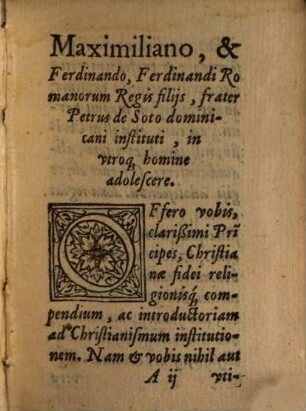 Maximiliano, &
Ferdinando, Ferdinandi Ro
manorum Regis filijs, frater
Petrus de Soto domini-
cani instituti, in
vtroq́, homine
adolescere.
OFfero vobis,
clarißimi Prī
cipes, Christia
næ fidei reli-
gionisq́, com-
pendium, ac introductoriam
ad Christianismum institutio-
nem. Nam & vobis nihil aut
A ij vti-